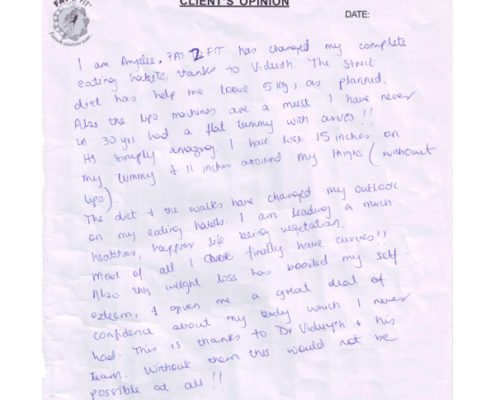 FAT 2 FIT
CLIENT'S OPINION
DATE:
I am Anjalee. FAT 2 FIT has changed my complete
eating habits, thanks to Vidush The Strict
diet has help me loose 5 kg, as planned.
Also the lipo machines are a must I have never
in 30 yrs had a flat tummy with curves !!
Its simply amazing. I have lose 15 inches on
my tummy & 11 inches around my thighs (without
lipo).
The diet & the walks have changed my outlook
on my eating habits. I am leading a much
healthier, happier life being vegetarian.
Most of all I finally have curves !!
Also this weight loss has boosted my self
esteem, & given me a great deal of
confidence about my body which I never
had. This is thanks to Dr & his
team. Without them this would not be
possible at all !!